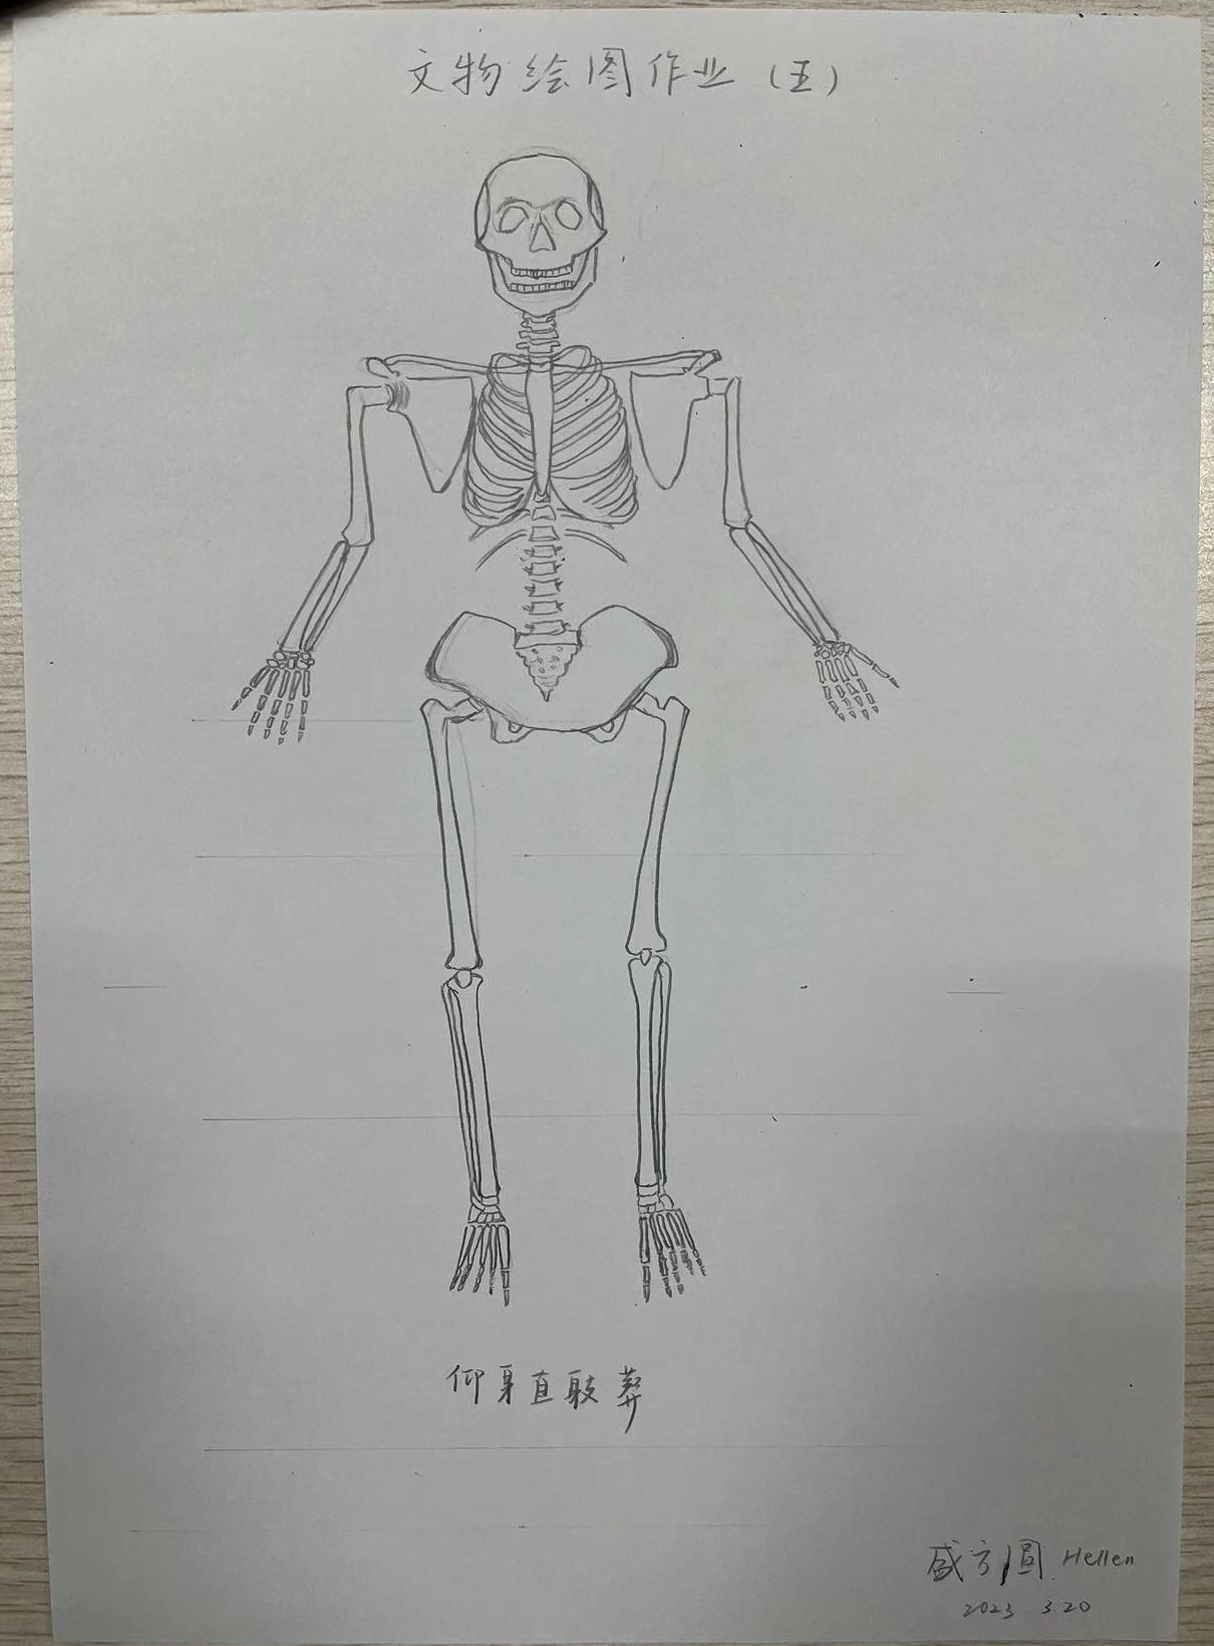 文物绘图作业（五）
仰身直肢葬
盛方圆 Hellen
2023 3.20